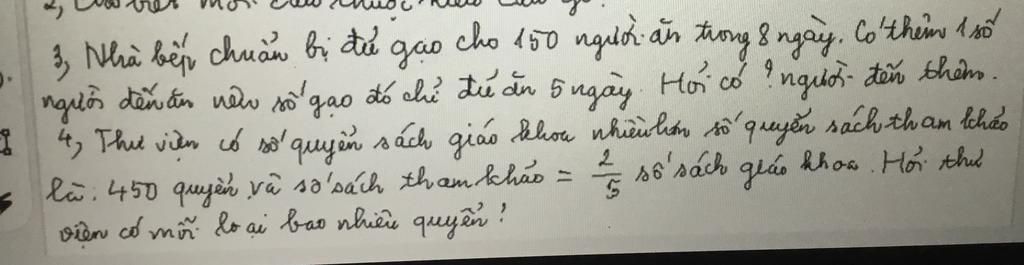 3, Nhà bếp chuẩn bị đủ gạo cho 150 người ăn trong 8 ngày. Có thêm 1 số
người đến ăn nên số gạo đó chỉ đủ ăn 5 ngày. Hỏi có ? người đến thêm.
4, Thư viện có số quyển sách giáo khoa nhiều hơn số quyển sách tham khảo
là: 450 quyển và số sách tham khảo = 2/5 số sách giáo khoa. Hỏi thư
viện có mỗi loại bao nhiêu quyển?